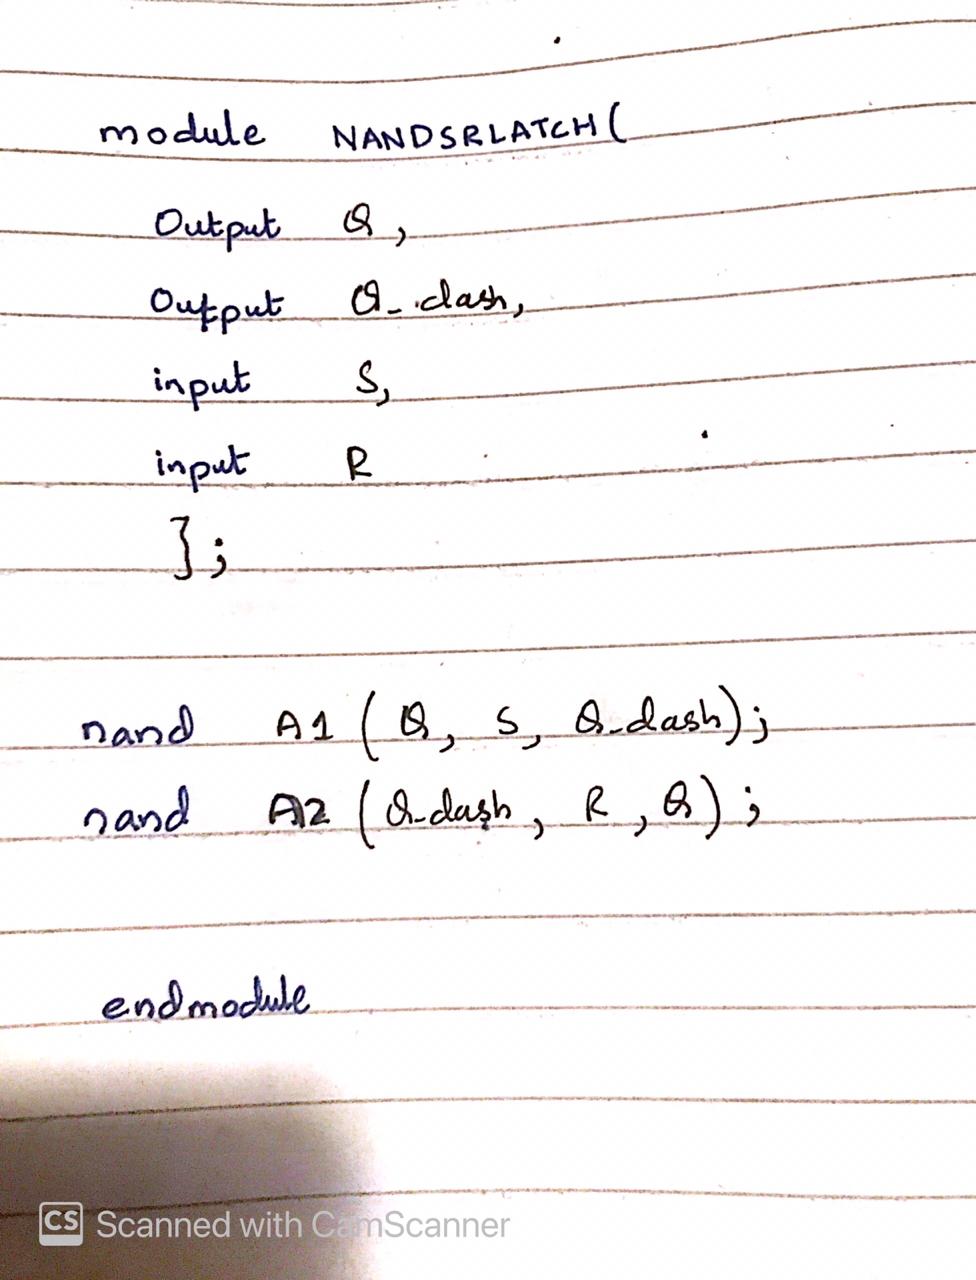 module NANDSRLATCH(
Output Q,
Output Q_dash,
input S,
input R
};
nand A1 ( Q, S, Q_dash);
nand A2 ( Q_dash, R, Q);
endmodule
CS Scanned with CamScanner